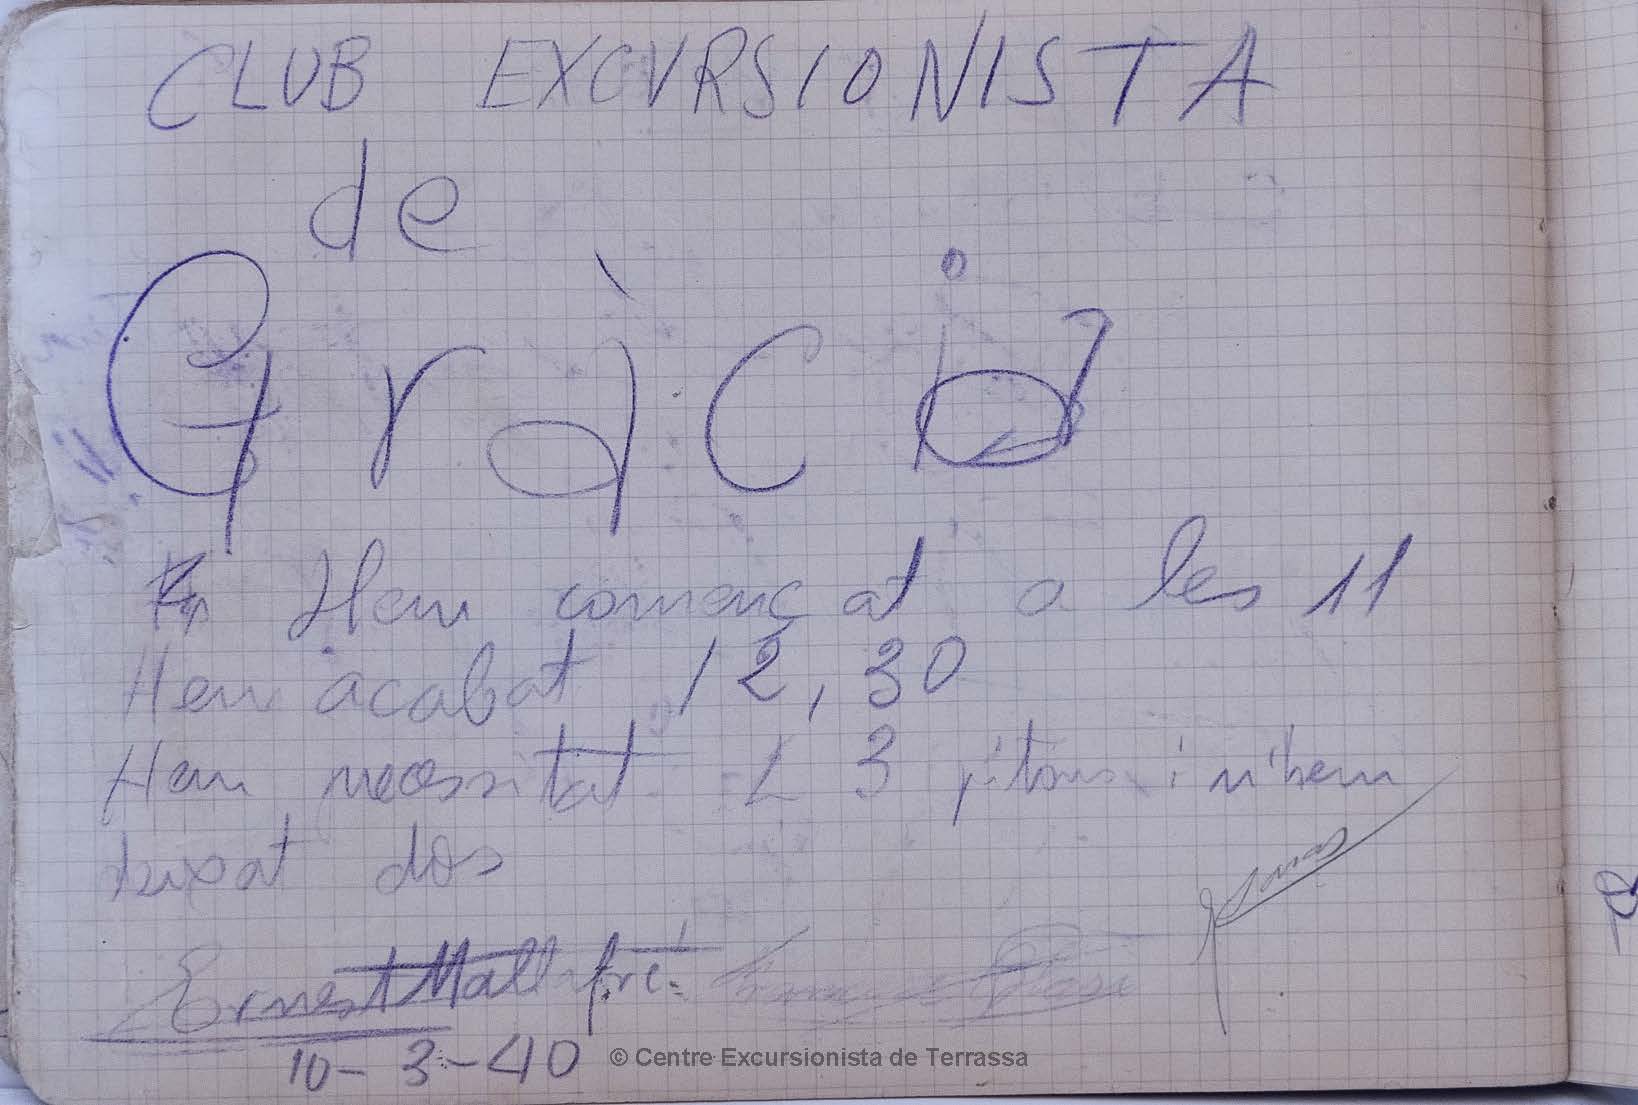 CLUB EXCURSIONISTA
de
Gràcia
Hem començat a les 11
Hem acabat 12,30
Hem necessitat 3 pitons i n'hem
deixat dos
Ernest Mallafré
10-3-40
© Centre Excursionista de Terrassa